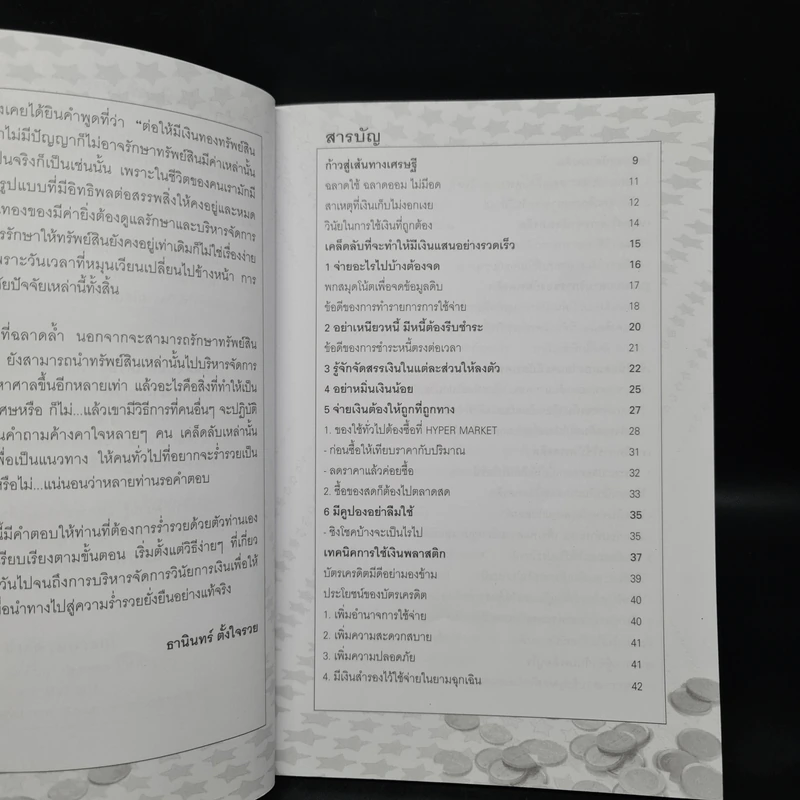 งเคยได้ยินคำพูดที่ว่า "ต่อให้มีเงินทองทรัพย์สิน
าไม่มีปัญญาก็ไม่อาจรักษาทรัพย์สินมีค่าเหล่านั้น
ป็นจริงก็เป็นเช่นนั้น เพราะในชีวิตของคนเรามักมี
รูปแบบที่มีอิทธิพลต่อสรรพสิ่งให้คงอยู่และหมด
นทองของมีค่ายิ่งต้องดูแลรักษาและบริหารจัดการ
รรักษาให้ทรัพย์สินยังคงอยู่เท่าเดิมก็ไม่ใช่เรื่องง่าย
พราะวันเวลาที่หมุนเวียนเปลี่ยนไปข้างหน้า การ
ัยปัจจัยเหล่านี้ทั้งสิ้น
ที่ฉลาดล้ำ นอกจากจะสามารถรักษาทรัพย์สิน
ยังสามารถนำทรัพย์สินเหล่านั้นไปบริหารจัดการ
หาศาลขึ้นอีกหลายเท่า แล้วอะไรคือสิ่งที่ทำให้เป็น
ศษหรือ ก็ไม่...แล้วเขามีวิธีการที่คนอื่นๆ จะปฏิบัติ
นคำถามค้างคาใจหลายๆ คน เคล็ดลับเหล่านั้น
พื่อเป็นแนวทาง ให้คนทั่วไปที่อยากจะร่ำรวยเป็น
หรือไม่...แน่นอนว่าหลายท่านรอคำตอบ
นี้มีคำตอบให้ท่านที่ต้องการร่ำรวยด้วยตัวท่านเอง
รียบเรียงตามขั้นตอน เริ่มตั้งแต่วิธีง่ายๆ ที่เกี่ยว
วันไปจนถึงการบริหารจัดการวินัยการเงินเพื่อให้
อนำทางไปสู่ความร่ำรวยยั่งยืนอย่างแท้จริง
ธานินทร์ ตั้งใจรวย
สารบัญ
ก้าวสู่เส้นทางเศรษฐี 9
ฉลาดใช้ ฉลาดออม ไม่มีอด 11
สาเหตุที่เงินเก็บไม่งอกเงย 12
วินัยในการใช้เงินที่ถูกต้อง 14
เคล็ดลับที่จะทำให้มีเงินแสนอย่างรวดเร็ว 15
1 จ่ายอะไรไปบ้างต้องจด 16
พกสมุดโน้ตเพื่อจดข้อมูลดิบ 17
ข้อดีของการทำรายการการใช้จ่าย 18
2 อย่าเหนียวหนี้ มีหนี้ต้องรีบชำระ 20
ข้อดีของการชำระหนี้ตรงต่อเวลา 21
3 รู้จักจัดสรรเงินในแต่ละส่วนให้ลงตัว 22
4 อย่าหมิ่นเงินน้อย 25
5 จ่ายเงินต้องให้ถูกที่ถูกทาง 27
1. ของใช้ทั่วไปต้องซื้อที่ HYPER MARKET 28
- ก่อนซื้อให้เทียบราคากับปริมาณ 31
- ลดราคาแล้วค่อยซื้อ 32
2. ซื้อของสดก็ต้องไปตลาดสด 33
6 มีคูปองอย่าลืมใช้ 35
- ชิงโชคบ้างจะเป็นไรไป 35
เทคนิคการใช้เงินพลาสติก 37
บัตรเครดิตมีดีอย่ามองข้าม 39
ประโยชน์ของบัตรเครดิต 40
1. เพิ่มอำนาจการใช้จ่าย 40
2. เพิ่มความสะดวกสบาย 41
3. เพิ่มความปลอดภัย 41
4. มีเงินสำรองไว้ใช้จ่ายในยามฉุกเฉิน 42